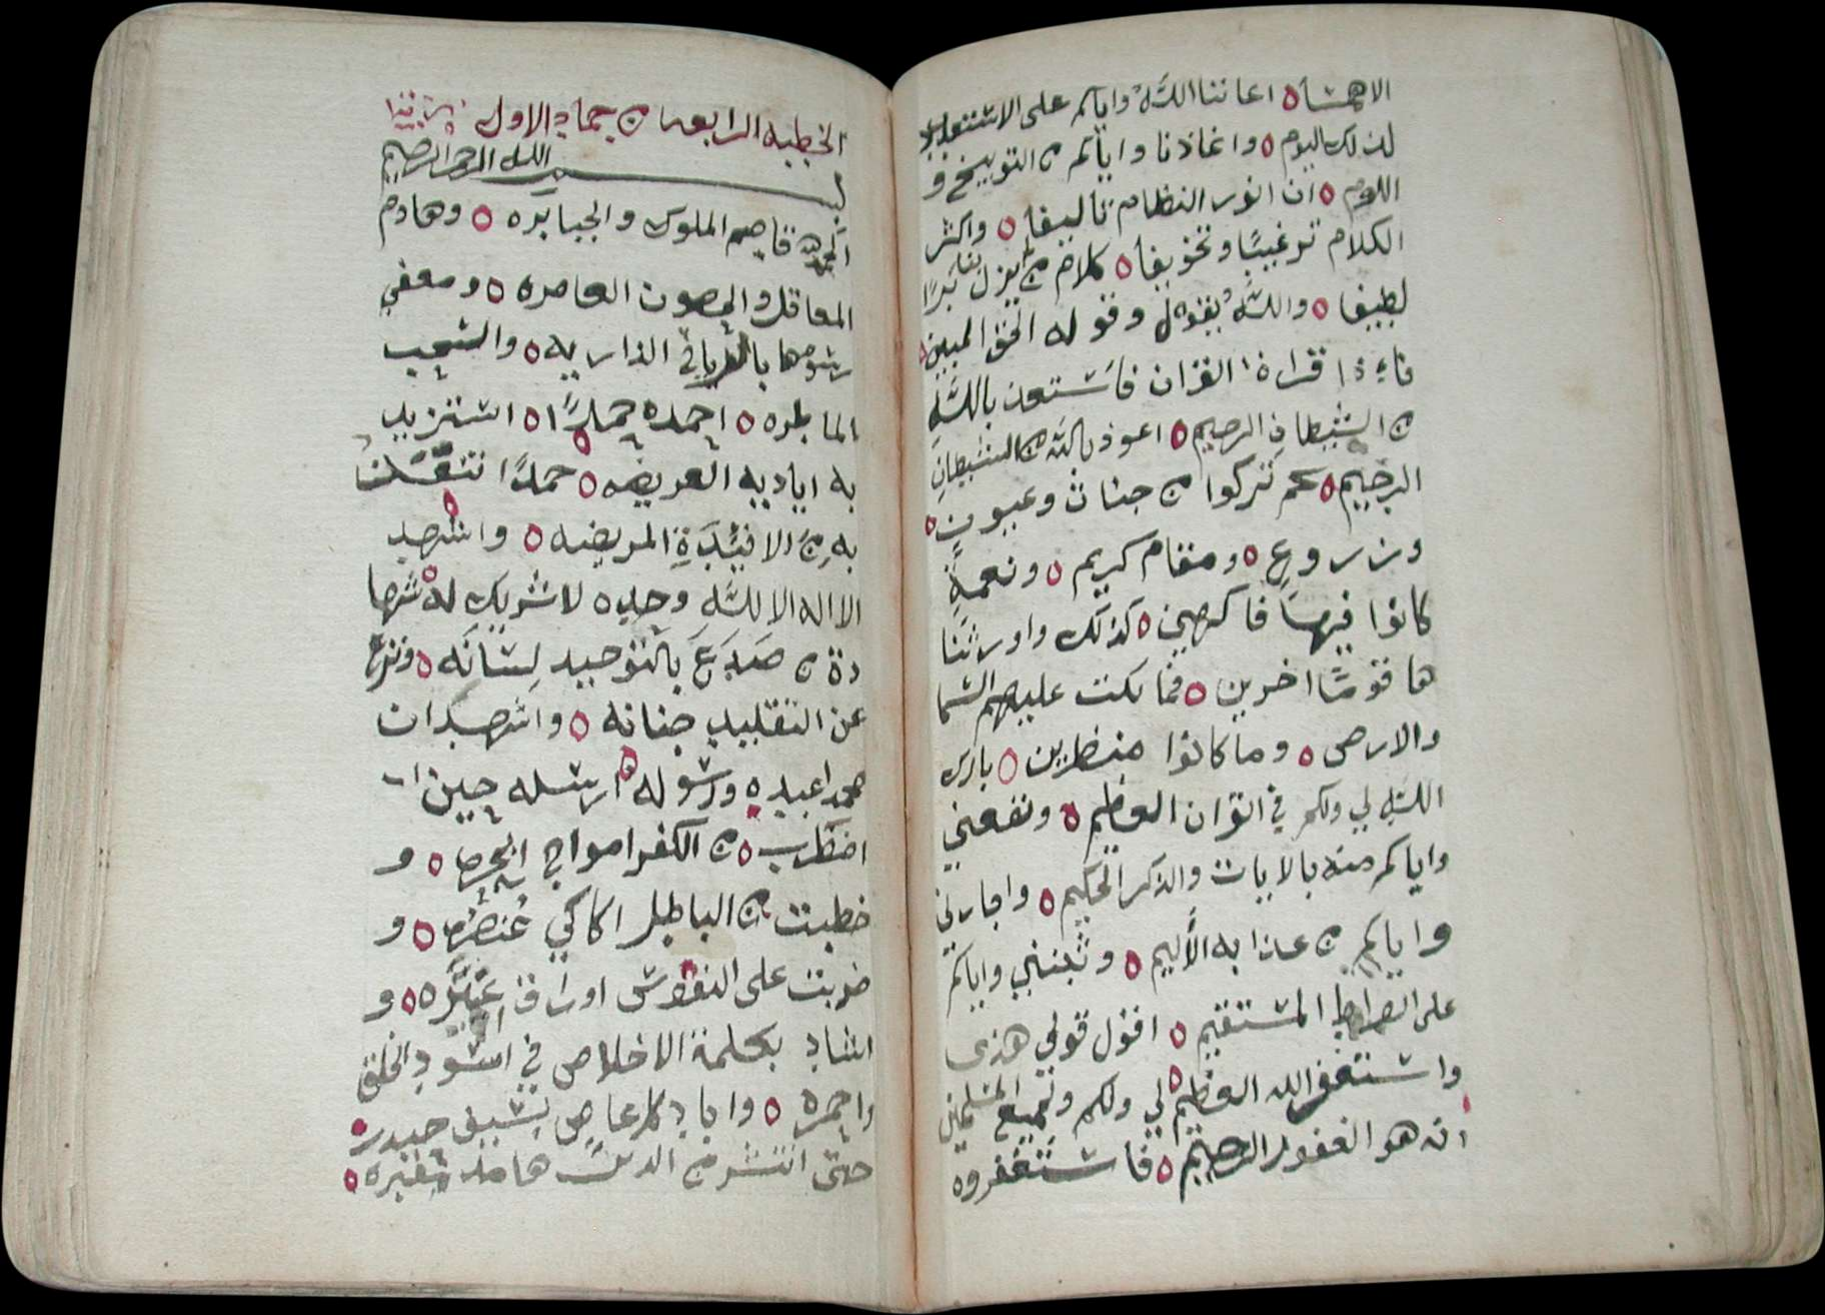 اعاننا الله واياكم على الاستعداد
لذلك اليوم واعاذنا واياكم من التوبيخ و
اللوم ان انور النظام تاليفا واكثر
الكلام ترغيبًا وتخويفا كلام من لم يزل بنا برًا
لطيفا والله يقول وقوله الحق المبين
فاءذا قراة القران فاستعذ بالله
من الشيطان الرجيم اعوذ بالله من الشيطان
الرجيم كم تركوا من جنات وعيون
وزروع ومقام كريم ونعمةٍ
كانوا فيها فاكهين كذلك واورثنا
ها قومًا اخرين فما بكت عليهم السما
والارض وما كانوا منظرين بارك
الله لي ولكم في القران العظيم ونفعني
واياكم منه بالايات والذكر الحكيم واجارني
واياكم من عذابه الأليم وثبتني واياكم
على الصراط المستقيم اقول قولي هذى
واستغفر الله العظيم لي ولكم ولجميع المسلمين
انه هو الغفور الرحيم فاستغفروه
الخطبه الرابعه من جماد الاول
بسم الله الرحمن الرحيم
الحمد لله قاصم الملوك والجبابره وهادم
المعاقل والحصون العامره ومعفي
رسومها الذاريه والسحب
الماطره احمده حمدًا استزيد
به اياديه العريضه حمدًا
به من الافئدةِ المريضه واشهد
الا اله الا الله وحده لا شريك له شها
دة من صَدَعَ بالتوحيد لسانَه ونزع
عن التقليد جنانه واشهد ان
محمدا عبده ورسوله ارسله حين
اضطرب من الكفر امواج و
خطبت من الباطل و
ضربت على النفوس و
اشاد بكلمة الاخلاص في اسود الخلق
واحمره واباد كل عاص بسيف حيدر
حتى انتشر من الدين هامد مقبره